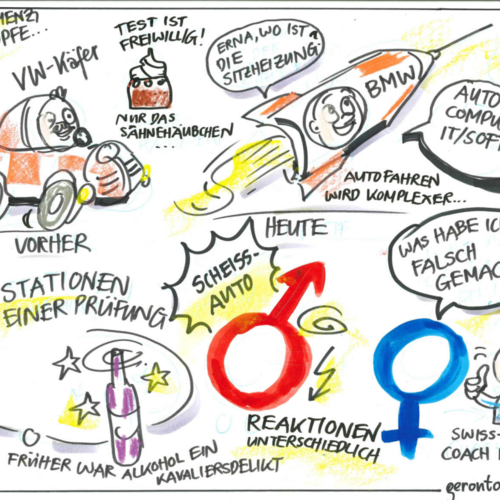 VW-Käfer
TEST IST
FREIWILLIG!
NUR DAS
SÄHNEHÄUBCHEN
...
ERNA, WO IST
DIE
SITZHEIZUNG?
BMW
AUTO
COMPU
IT/SOF
AUTOFAHREN
WIRD KOMPLEXER...
VORHER
HEUTE
STATIONEN
EINER PRÜFUNG
SCHEISS-
AUTO
WAS HABE IC
FALSCH
GEMAC
FRÜHER WAR ALKOHOL EIN
KAVALIERSDELIKT
REAKTIONEN
UNTERSCHIEDLICH
SWISS-
COACH
geront